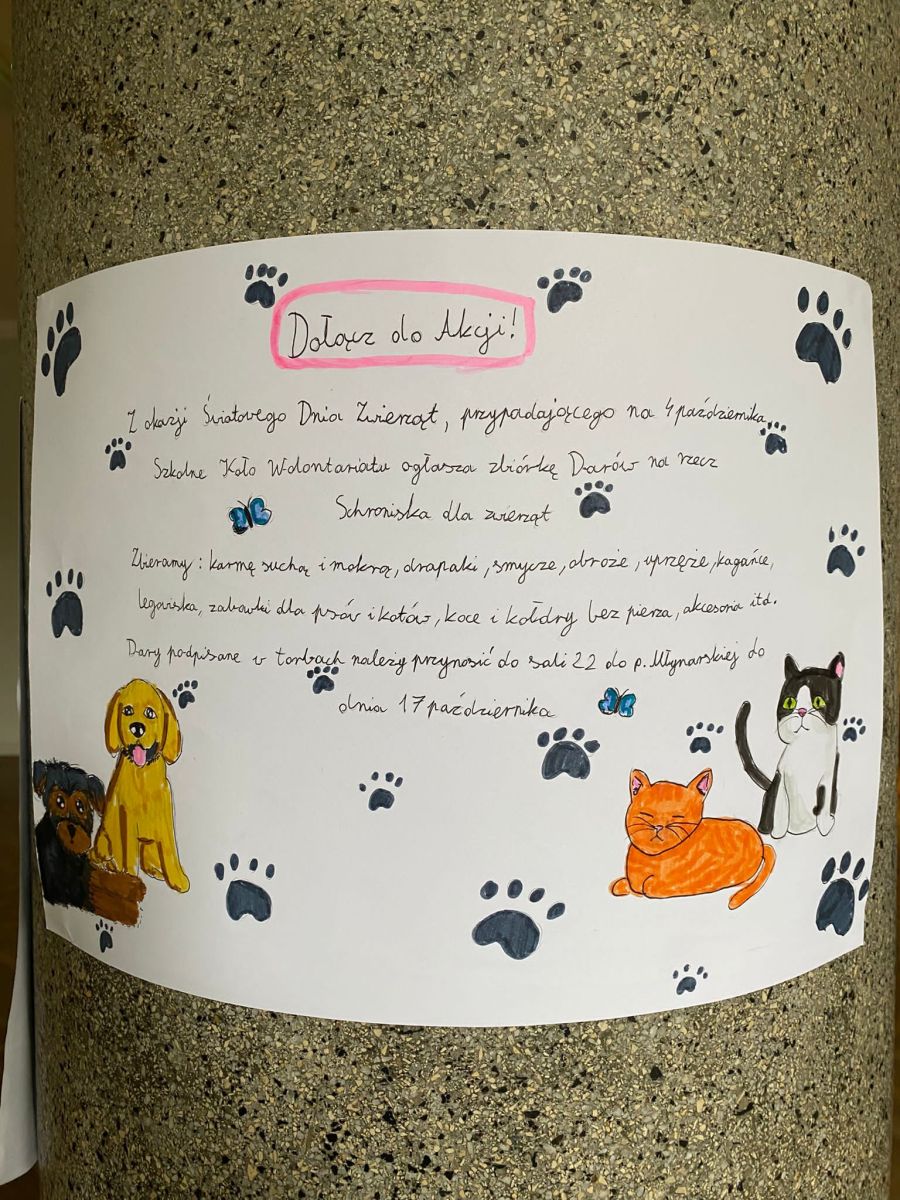 Dołącz do Akcji!
Z okazji Światowego Dnia Zwierząt, przypadającego na 4 października,
Szkolne Koło Wolontariatu ogłasza zbiórkę Darów na rzecz
Schroniska dla zwierząt
Zbieramy: karmę suchą i mokrą, drapaki, smycze, obroże, uprzęże, kagańce,
legowiska, zabawki dla psów i kotów, koce i kołdry bez pierza, akcesoria itd.
Dary podpisane w torbach należy przynosić do sali 22 do p. Młynarskiej do
dnia 17 października